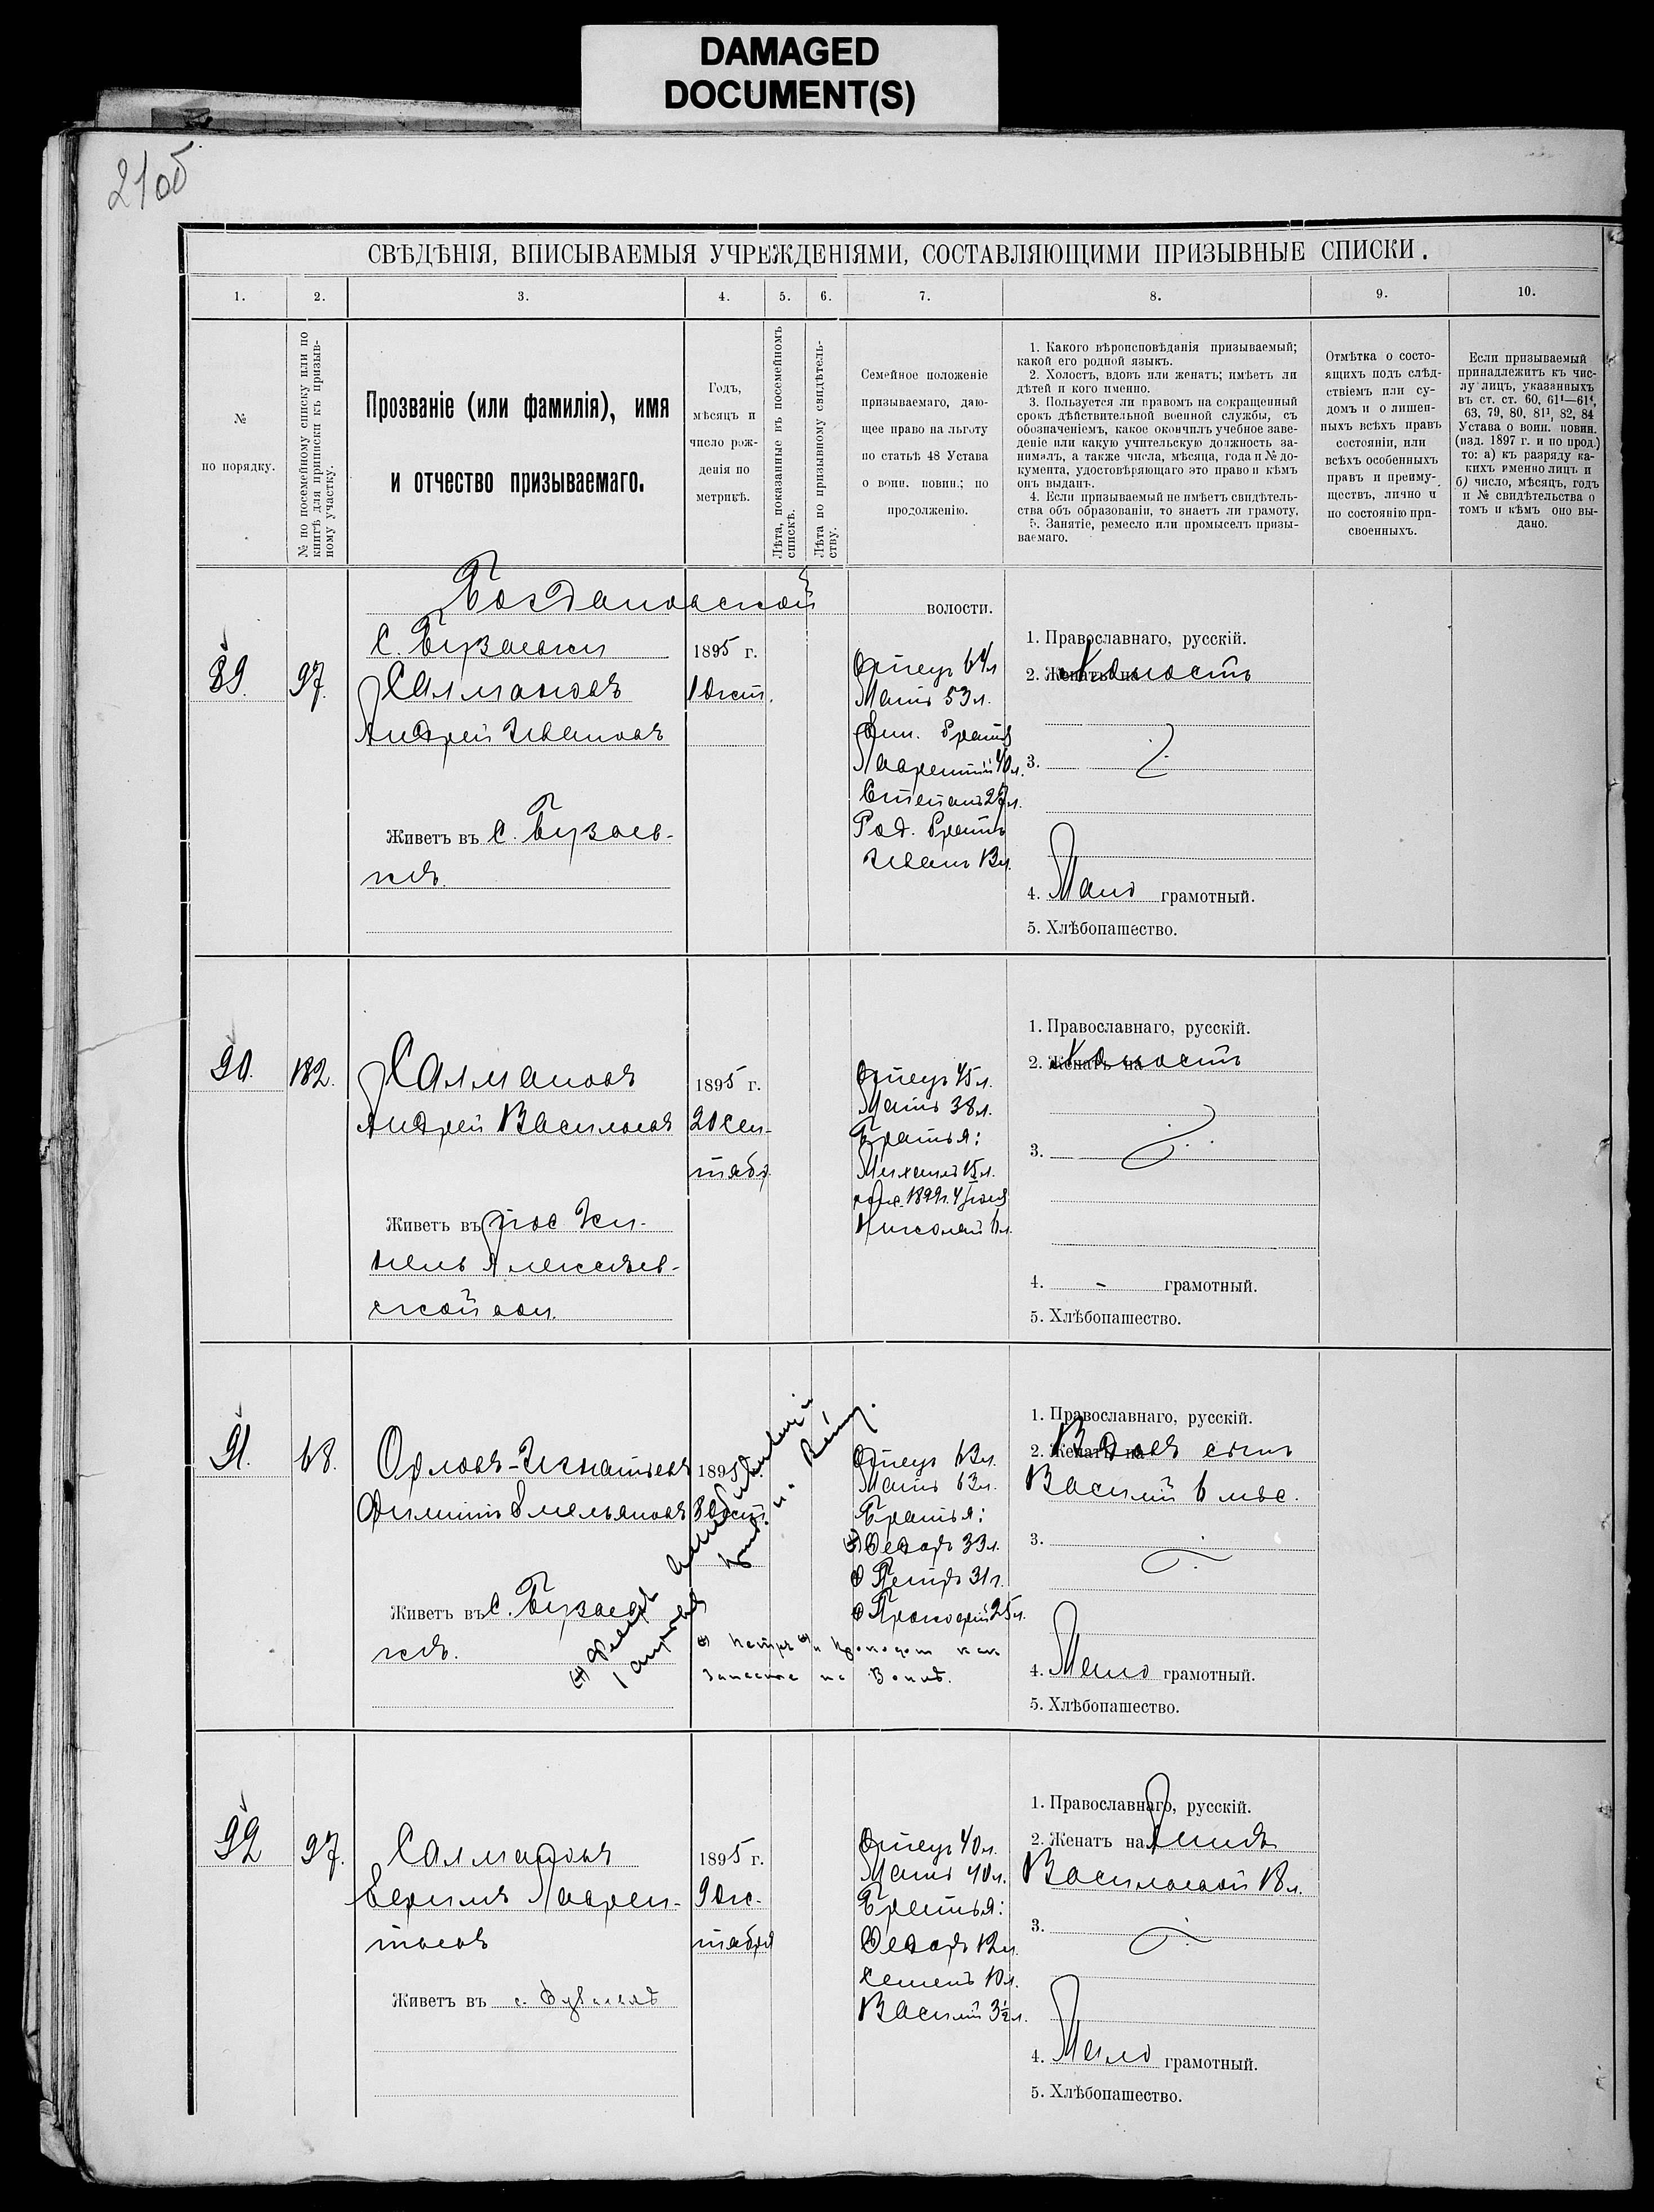 DAMAGED
DOCUMENT(S)
21 об
СВѢДѢНІЯ, ВПИСЫВАЕМЫЯ УЧРЕЖДЕНІЯМИ, СОСТАВЛЯЮЩИМИ ПРИЗЫВНЫЕ СПИСКИ.
1. 2. 3. 4. 5. 6. 7. 8. 9. 10.
№
по порядку.
№ по посемейному списку или по
книгѣ для приписки къ призыв-
ному участку.
Прозваніе (или фамилія), имя
и отчество призываемаго.
Годъ,
мѣсяцъ и
число рож-
денія по
метрицѣ.
Лѣта, показанные въ посемейномъ
спискѣ.
Лѣта по призывному свидѣтель-
ству.
Семейное положеніе
призываемаго, даю-
щее право на льготу
по статьѣ 48 Устава
о воин. повин.; по
продолженію.
1. Какого вѣроисповѣданія призываемый;
какой его родной языкъ.
2. Холостъ, вдовъ или женатъ; имѣетъ ли
дѣтей и кого именно.
3. Пользуется ли правомъ на сокращенный
срокъ дѣйствительной военной службы, съ
обозначеніемъ, какое окончилъ учебное заве-
деніе или какую учительскую должность за-
нималъ, а также числа, мѣсяца, года и № до-
кумента, удостовѣряющаго это право и кѣмъ
онъ выданъ.
4. Если призываемый не имѣетъ свидѣтель-
ства объ образованіи, то знаетъ ли грамоту.
5. Занятіе, ремесло или промыселъ призы-
ваемаго.
Отмѣтка о состо-
ящихъ подъ слѣд-
ствіемъ или су-
домъ и о лишен-
ныхъ всѣхъ правъ
состоянія, или
всѣхъ особенныхъ
правъ и преиму-
ществъ, лично и
по состоянію при-
своенныхъ.
Если призываемый
принадлежитъ къ чис-
лу лицъ, указанныхъ
въ ст. ст. 60, 61¹—61⁴,
63, 79, 80, 81¹, 82, 84
Устава о воин. повин.
(изд. 1897 г. и по прод.)
то: а) къ разряду ка-
кихъ именно лицъ и
б) число, мѣсяцъ, годъ
и № свидѣтельства о
томъ и кѣмъ оно вы-
дано.
Богдановской волости.
89. 97.
С. Бузаевки
Салмановъ
Андрей Ивановъ
Живетъ въ с. Бузаев-
кѣ.
1895 г.
1 Окт.
Отецъ 64 л
Мать 53 л.
братья
Лаврентій 40 л.
Степанъ 27 л.
Род. братъ
Иванъ 13 л.
1. Православнаго, русскій.
2. Женатъ на Холостъ
3.
4. Мало грамотный.
5. Хлѣбопашество.
90. 182.
Салмановъ
Андрей Васильевъ
Живетъ въ пос. Ки-
нель Алексѣев-
ской вол.
1895 г.
20 сен-
тябр
Отецъ 45 л.
Мать 38 л.
Братья:
Михаилъ 15 л.
Николай 6 л.
1. Православнаго, русскій.
2. Женатъ на Холостъ
3.
4. - грамотный.
5. Хлѣбопашество.
91. 68.
Орловъ-Игнатьевъ
Филиппъ Емельяновъ
Живетъ въ с. Бузаев
кѣ.
1895 г.
Отецъ 63 л.
Мать 63 л.
Братья:
Федоръ 39 л.
Петръ 31 г.
Прокофій 25 л.
Петръ и Прокофій
1. Православнаго, русскій.
2. Женатъ на Вдовъ сынъ
Василій 6 мѣс.
3.
4. Мало грамотный.
5. Хлѣбопашество.
92 97.
Салмановъ
Лаврен-
тьевъ
Живетъ въ с. Бузаевкѣ
1895 г.
9 Ок-
тября
Отецъ 40 л.
Мать 40 л.
Братья:
Федоръ 12 л.
Семенъ 10 л.
Василій 3½ л.
1. Православнаго, русскій.
2. Женатъ на
Васильевой 18 л.
3.
4. Мало грамотный.
5. Хлѣбопашество.